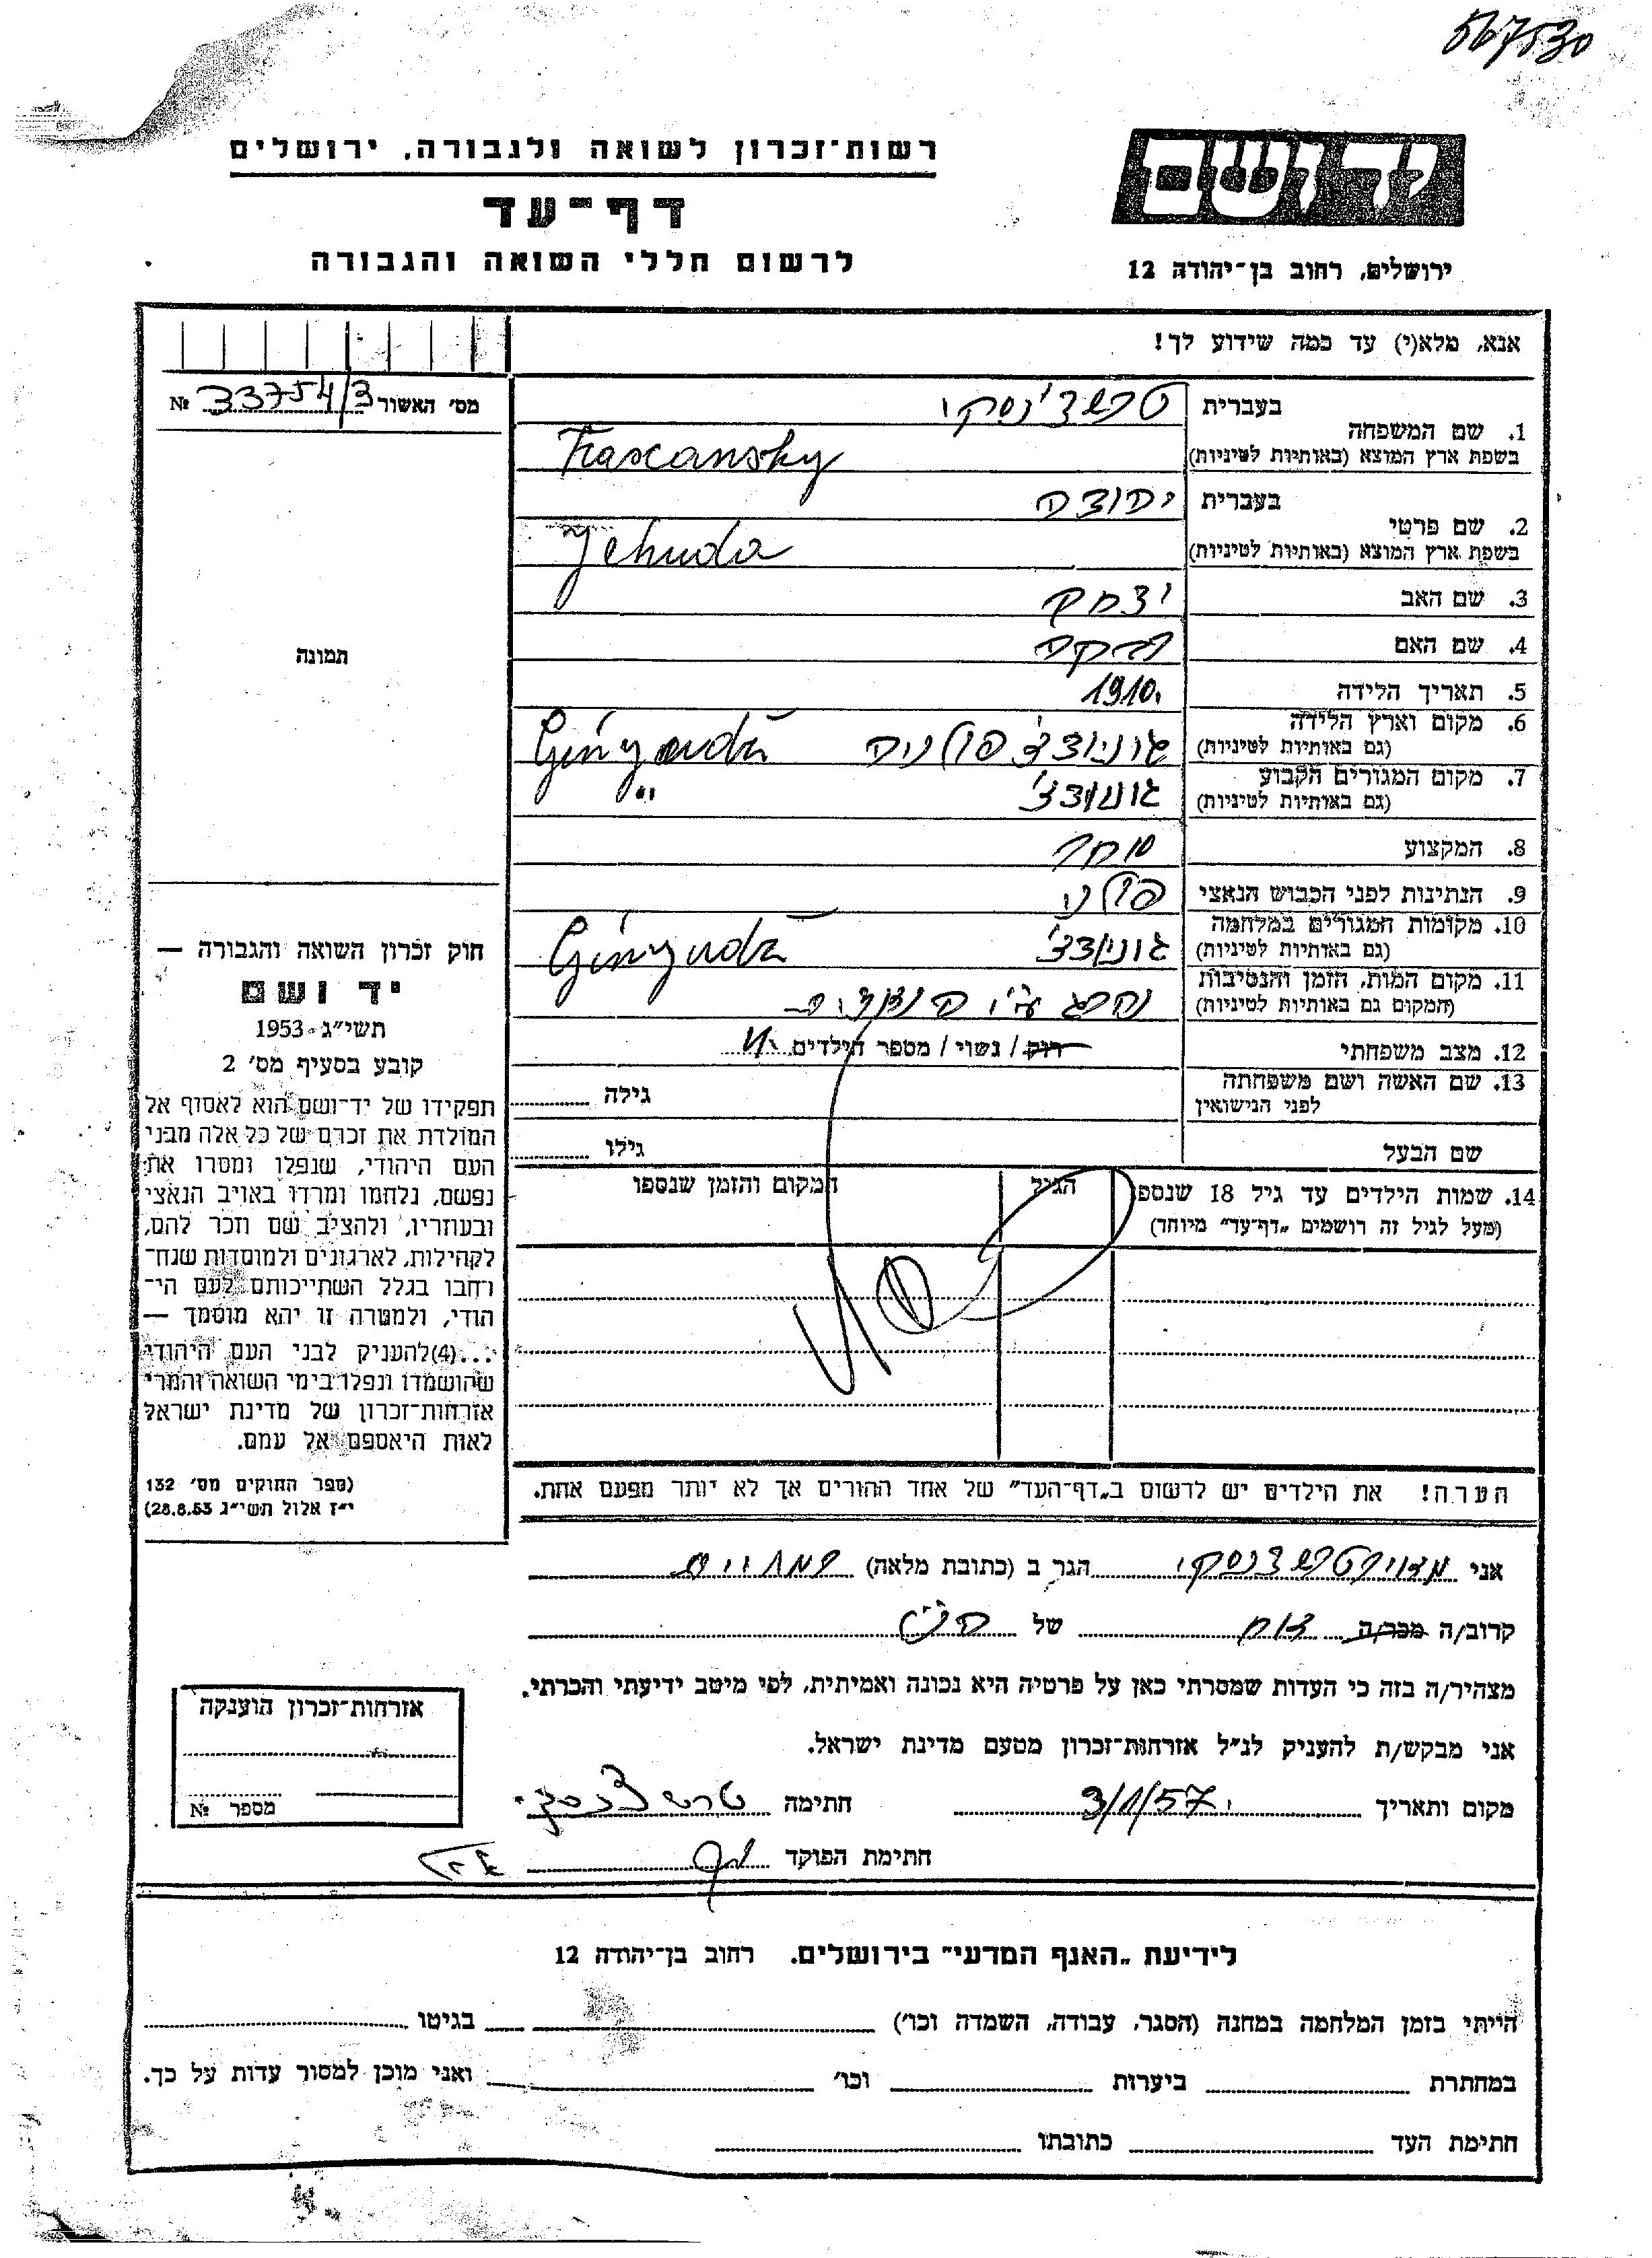 567530
יד ושם
ירושלים, רחוב בן־יהודה 12
רשות־זכרון לשואה ולגבורה, ירושלים
דף־עד
לרשום חללי השואה והגבורה
אנא, מלא(י) עד כמה שידוע לך!
מס׳ האשור 33754/3 №
תמונה
1. שם המשפחה
בעברית
בשפת ארץ המוצא (באותיות לטיניות) Trascansky
2. שם פרטי
בעברית יהודה
בשפת ארץ המוצא (באותיות לטיניות) Jehuda
3. שם האב יצחק
4. שם האם רבקה
5. תאריך הלידה 1910
6. מקום וארץ הלידה
(גם באותיות לטיניות) גוניונדז פולניה
7. מקום המגורים הקבוע
(גם באותיות לטיניות) "
8. המקצוע סוחר
9. הנתינות לפני הכבוש הנאצי פולני
10. מקומות המגורים במלחמה
(גם באותיות לטיניות)
11. מקום המות, הזמן והנסיבות
(המקום גם באותיות לטיניות) נהרג ע״י
12. מצב משפחתי רוק / נשוי / מספר הילדים
13. שם האשה ושם משפחתה
לפני הנישואין גילה
שם הבעל גילו
14. שמות הילדים עד גיל 18 שנספו
(מעל לגיל זה רושמים „דף־עד״ מיוחד)
הגיל
המקום והזמן שנספו
הערה! את הילדים יש לרשום ב„דף־העד״ של אחד ההורים אך לא יותר מפעם אחת.
חוק זכרון השואה והגבורה —
יד ושם
תשי״ג-1953
קובע בסעיף מס׳ 2
תפקידו של יד־ושם הוא לאסוף אל
המולדת את זכרם של כל אלה מבני
העם היהודי, שנפלו ומסרו את
נפשם, נלחמו ומרדו באויב הנאצי
ובעוזריו, ולהציב שם וזכר להם,
לקהילות, לארגונים ולמוסדות שנח־
רחבו בגלל השתייכותם לעם הי־
הודי, ולמטרה זו יהא מוסמך —
...(4) להעניק לבני העם היהודי
שהושמדו ונפלו בימי השואה והמרי
אזרחות־זכרון של מדינת ישראל
לאות היאספם אל עמם.
(ספר החוקים מס׳ 132
י״ז אלול תשי״ג 28.8.53)
אני הגר ב (כתובת מלאה)
קרוב/ה מכר/ה אח של הנ״ל
מצהיר/ה בזה כי העדות שמסרתי כאן על פרטיה היא נכונה ואמיתית, לפי מיטב ידיעתי והכרתי.
אני מבקש/ת להעניק לנ״ל אזרחות־זכרון מטעם מדינת ישראל.
מקום ותאריך 3/1/57 חתימה
חתימת הפוקד
אזרחות־זכרון הוענקה
מספר №
לידיעת „האנף המדעי״ בירושלים. רחוב בן־יהודה 12
הייתי בזמן המלחמה במחנה (הסגר, עבודה, השמדה וכו׳) בגיטו
במחתרת ביערות וכו׳ ואני מוכן למסור עדות על כך.
חתימת העד כתובתו